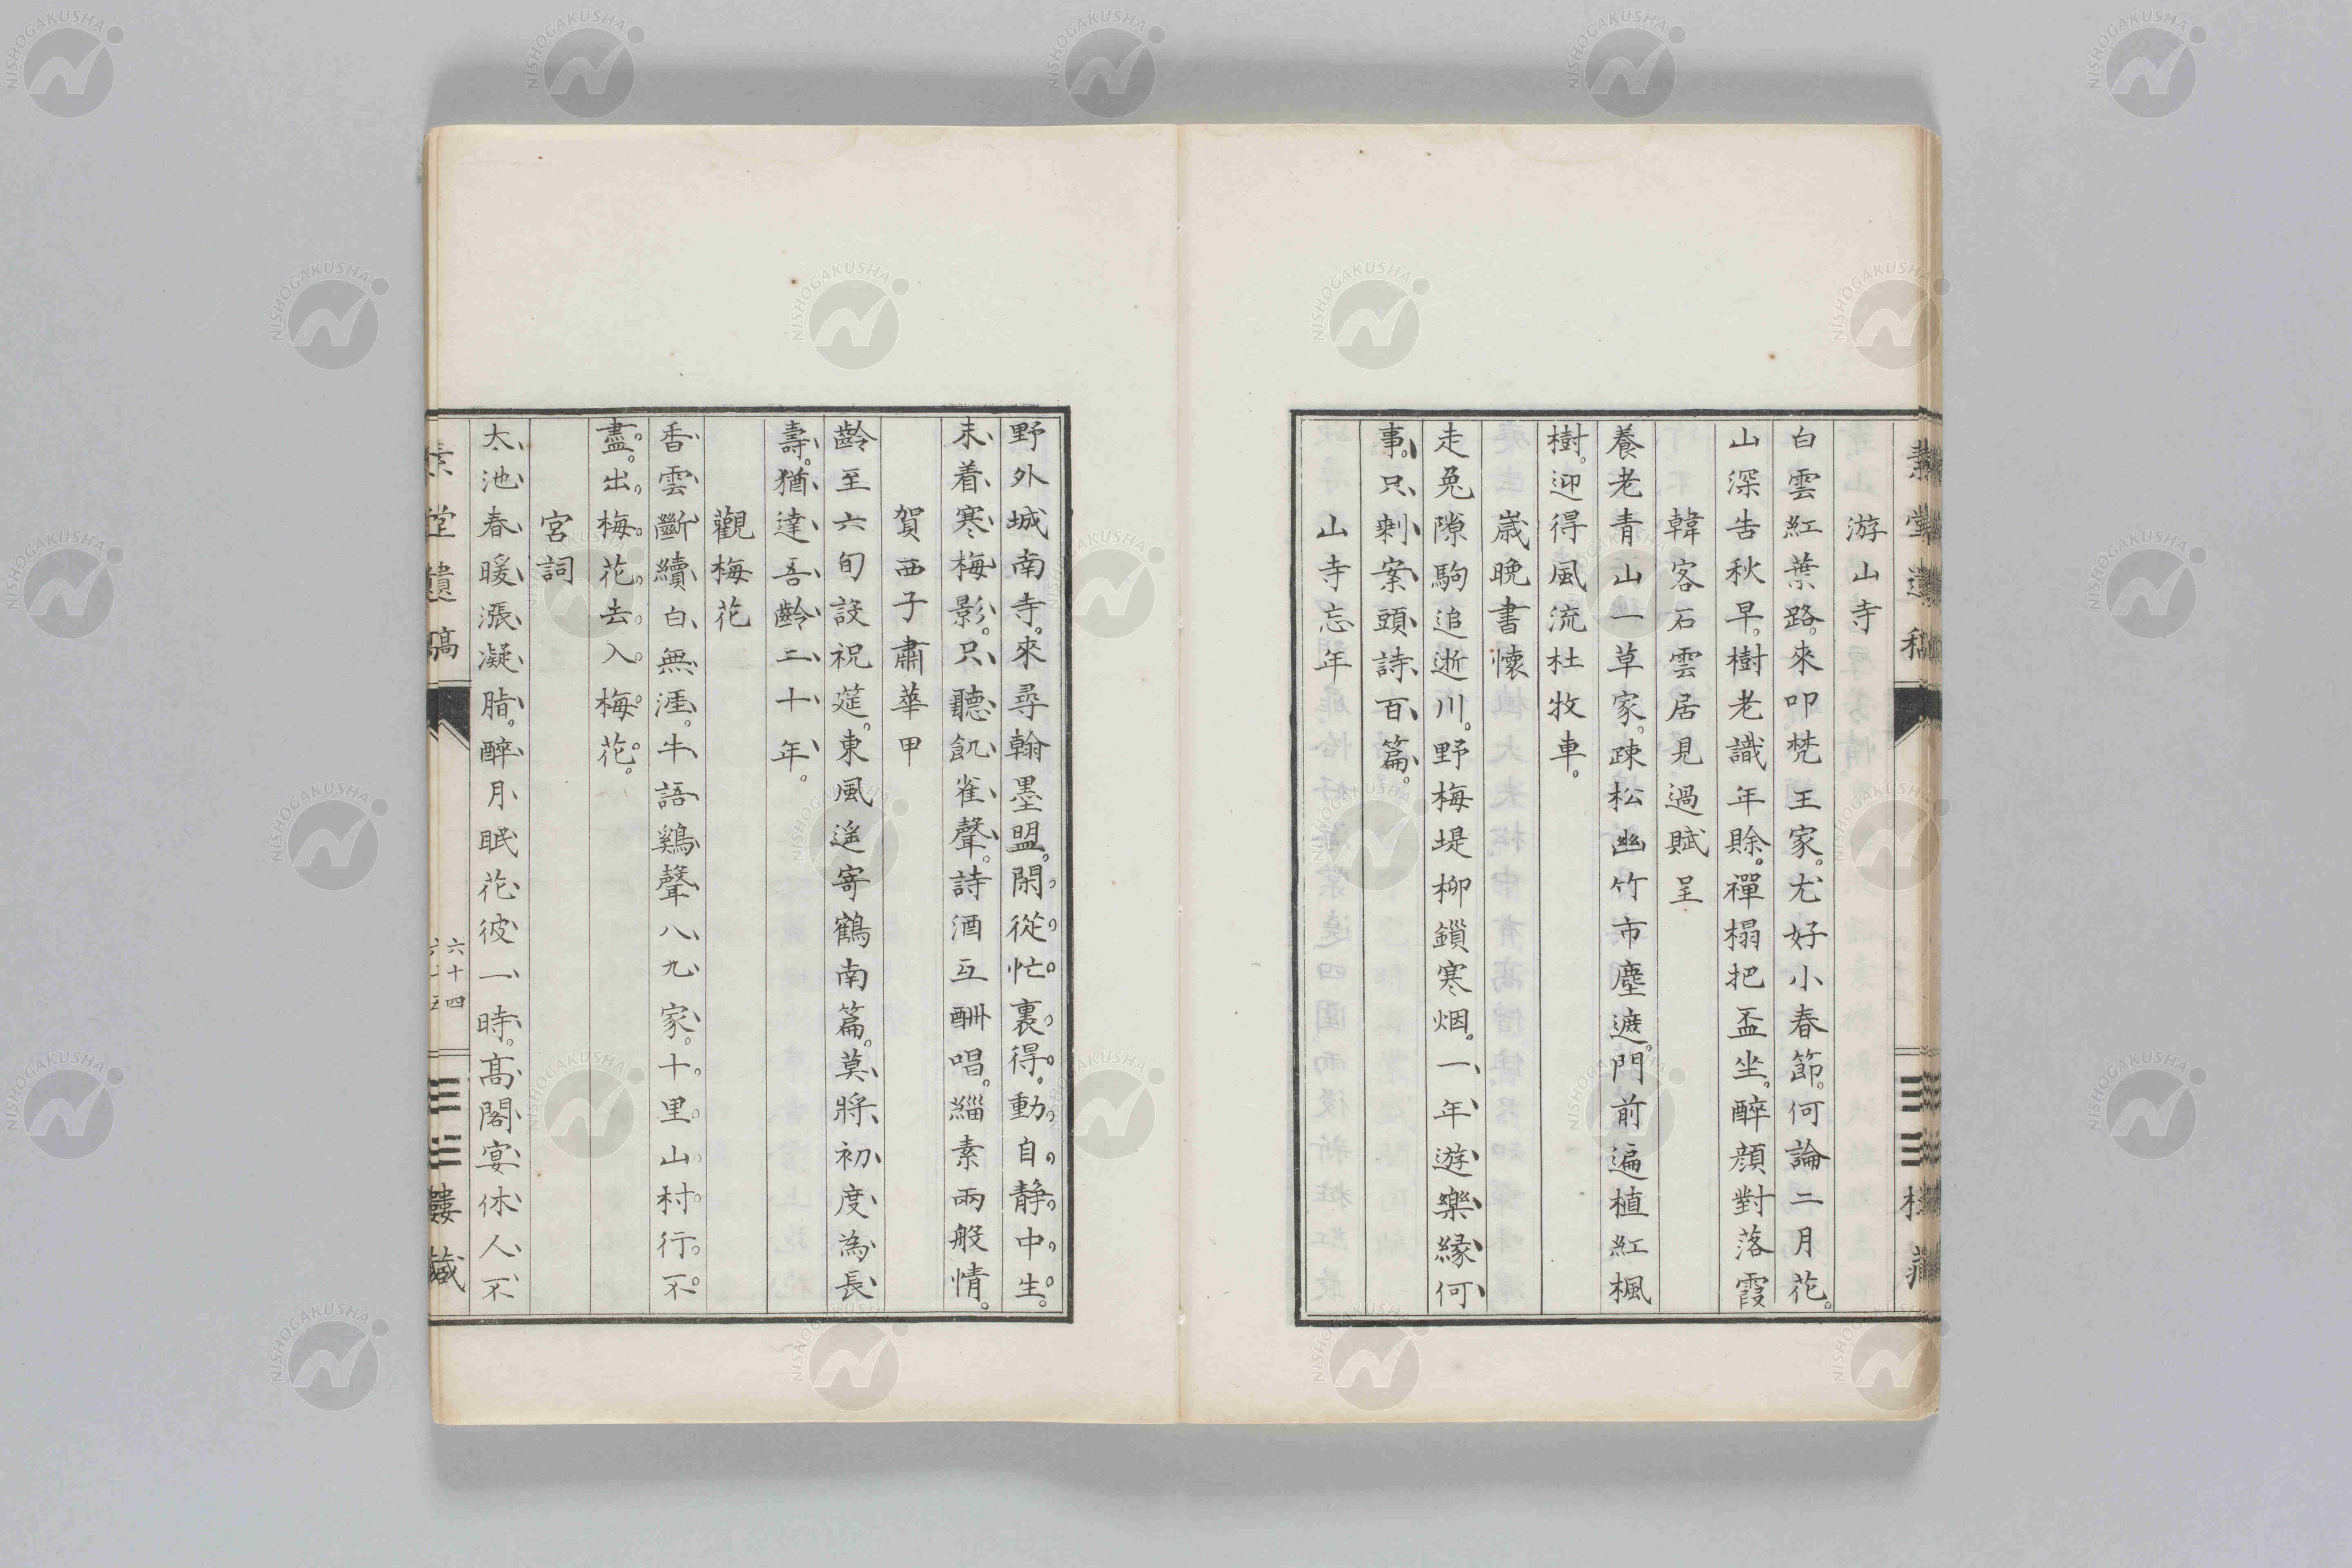 游山寺
白雲紅葉路。來叩梵王家。尤好小春節。何論二月花。
山深告秋早。樹老識年賒。禪榻把盃坐。醉顔對落霞
韓客石雲居見過賦呈
養老青山一草家。疎松幽竹市塵遮。門前遍植紅楓
樹。迎得風流杜牧車。
歳晩書懷
走兔隙駒追逝川。野梅堤柳鎖寒烟。一年遊樂緣何
事。只剩案頭詩百篇。
山寺忘年
野外城南寺。來尋翰墨盟。閑從忙裏得。動自静中生。
未着寒梅影。只聽飢雀聲。詩酒互酬唱。緇素兩般情。
賀西子肅華甲
齡至六旬設祝筵。東風遙寄鶴南篇。莫將初度為長
壽。猶達吾齡二十年。
觀梅花
香雲斷續白無涯。牛語鷄聲八九家。十里山村行不
盡。出梅花去入梅花。
宮詞
太池春暖漲凝脂。醉月眠花彼一時。高閣宴休人不
素堂遺稿
六十四